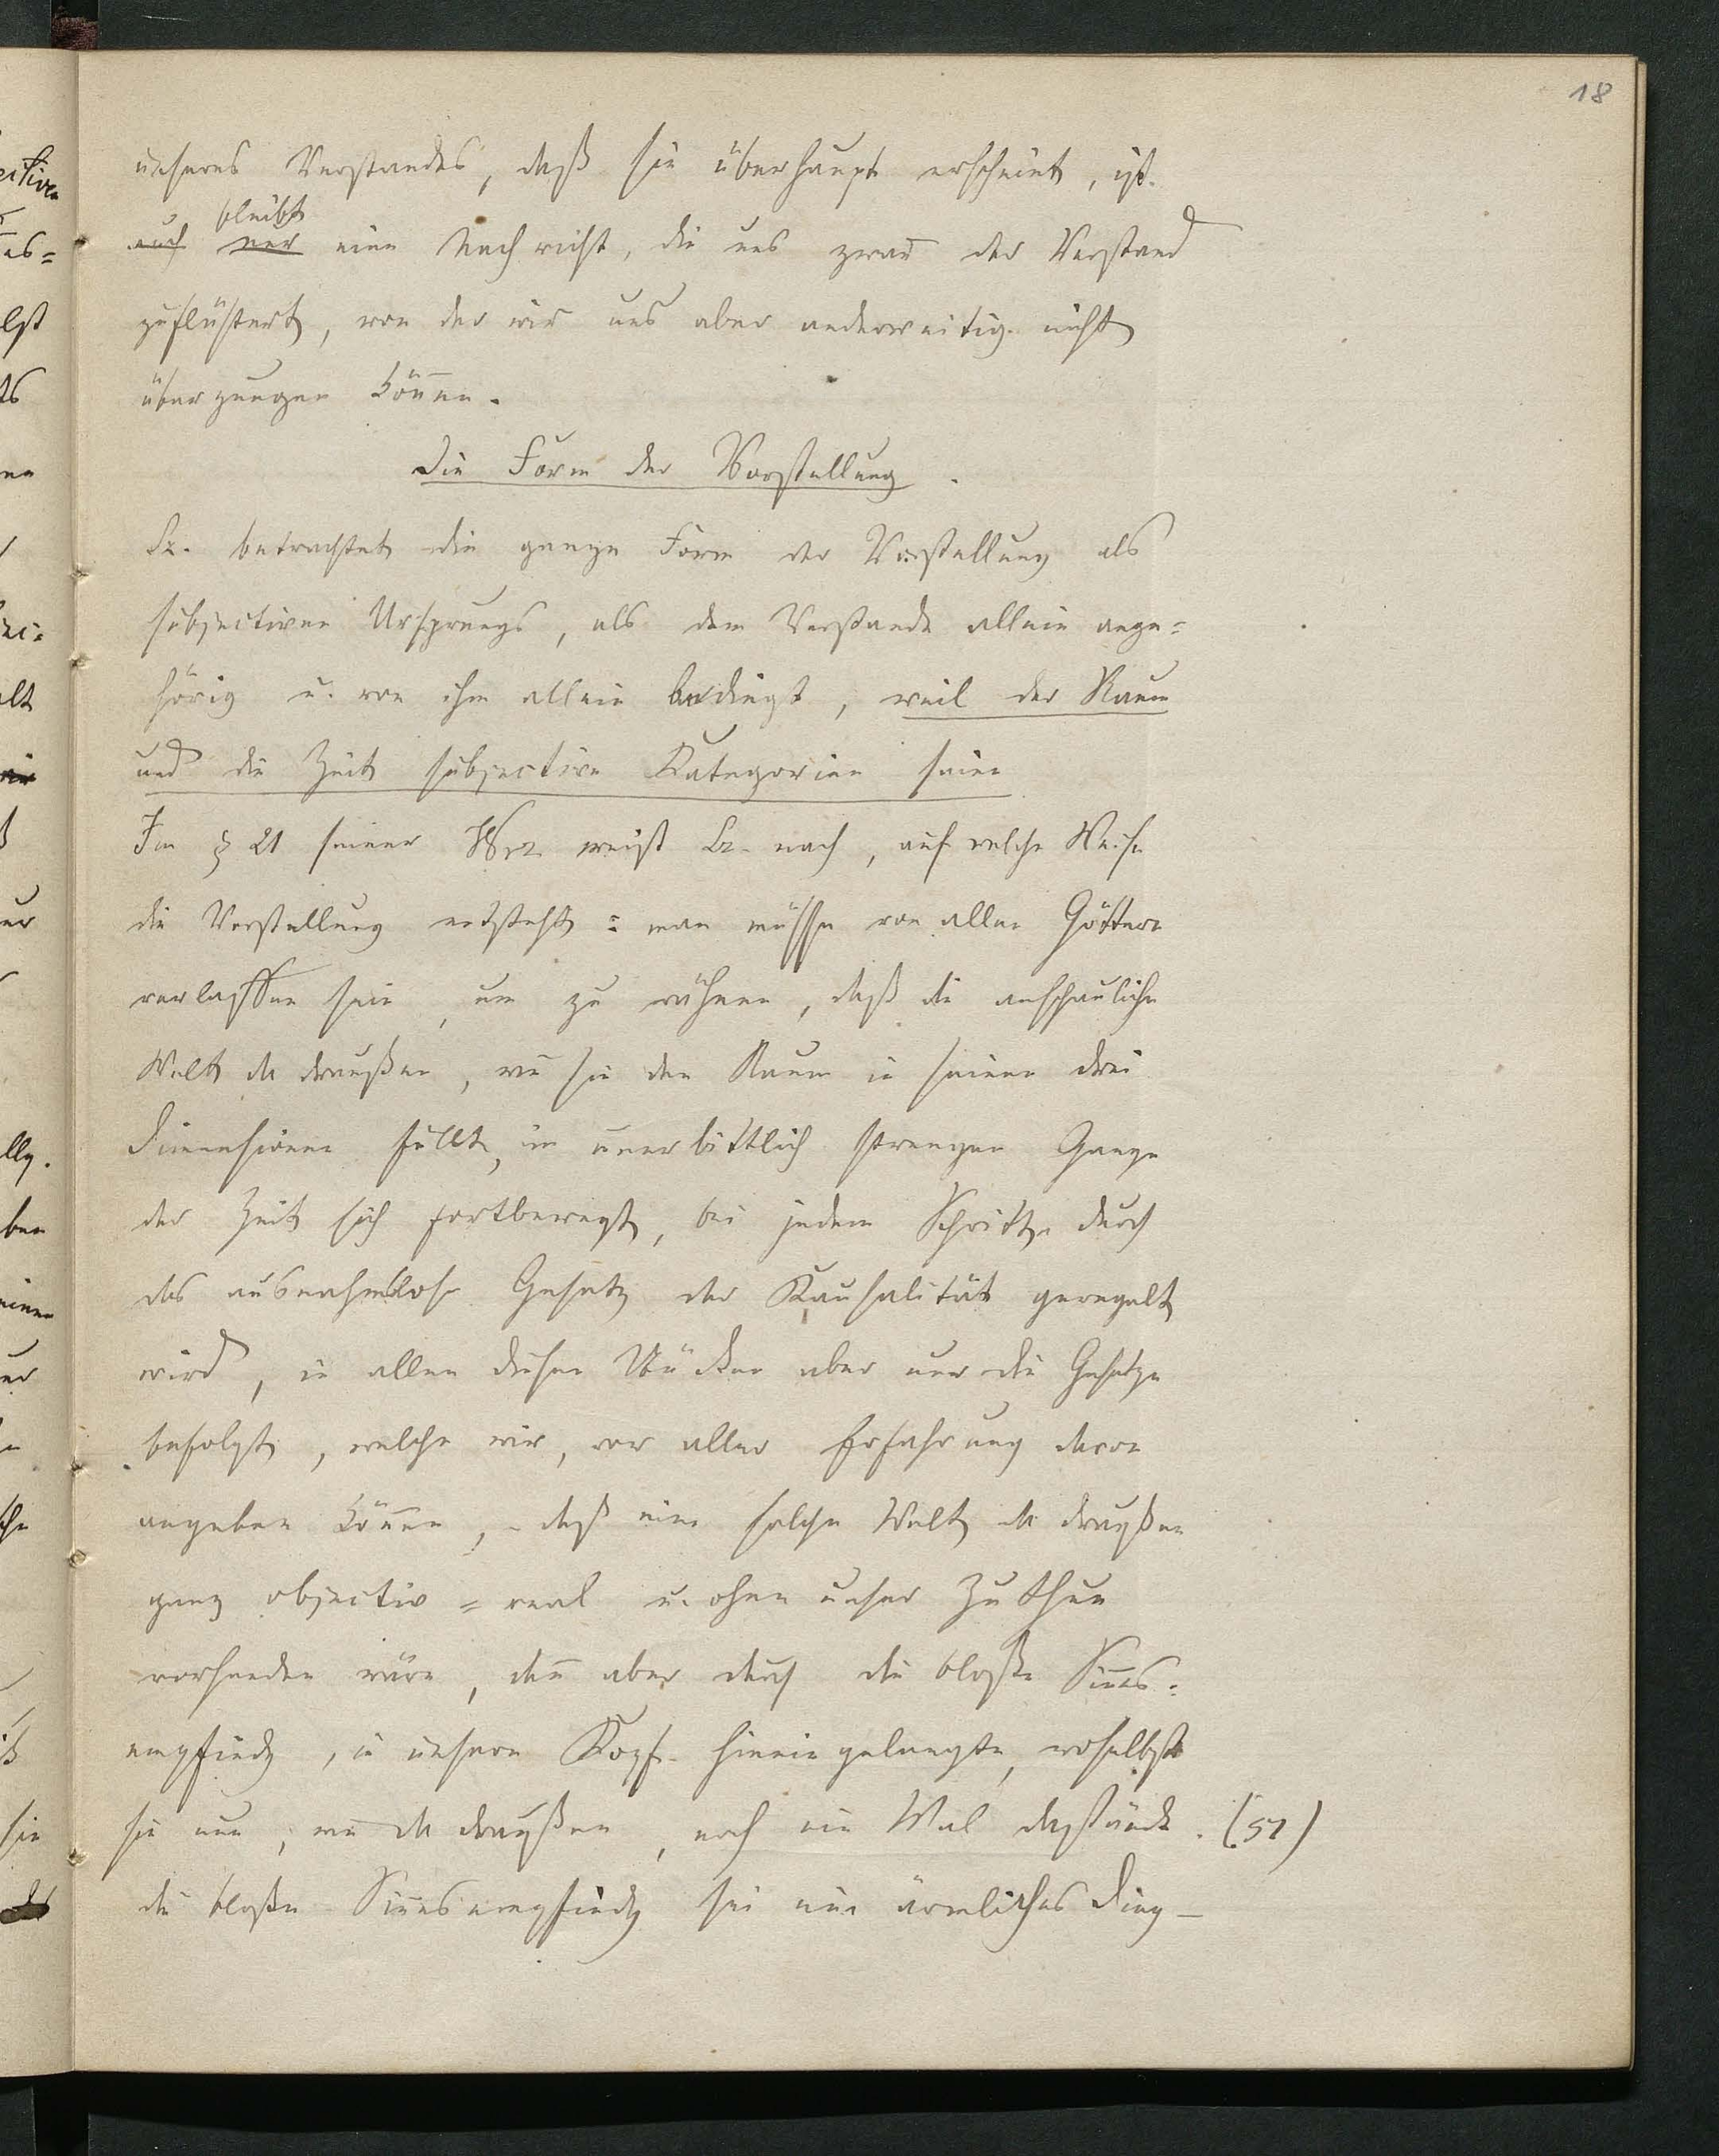 18
unseres Verstandes, daß sie überhaupt erscheint, ist
bleibt
auch nur eine Nachricht, die uns zwar der Verstand
zuflüstert, von der wir uns aber anderweitig nicht
überzeugen können.
Die Form der Vorstellung.
betrachtet die ganze Form der Vorstellung als
subjectiven Ursprungs, als dem Verstande allein ange=
hörig u. von ihm allein bedingt, weil der Raum
und die Zeit subjective Kategorien seien
Im § 21 seiner weist nach, auf welche Weise
die Vorstellung entsteht: man müsse von allen Göttern
verlassen sein, um zu wähnen, daß die anschauliche
Welt da draußen, wie sie den Raum in seinen drei
Dimensionen füllt, im unerbittlich strengen Gange
der Zeit sich fortbewegt, bei jedem Schritte durch
das ausnahmslose Gesetz der Kausalität geregelt
wird, in allen diesen Stücken aber nur die Gesetze
befolgt, welche wir, vor aller Erfahrung davon
angeben können, – daß eine solche Welt da draußen
ganz objectiv = real u. ohne unser Zuthun
vorhanden wäre, dann aber durch die bloße Sinnes=
empfindg, in unsern Kopf hineingelangte, woselbst
sie nun, wie da draußen, noch ein Mal dastände. (51)
die bloße Sinnesempfindg sei ein ärmliches Ding –